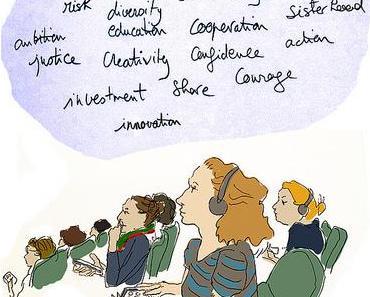 risk diversity Sisterhood
ambition education cooperation
justice Creativity Confidence action
investment Share Courage
innovation